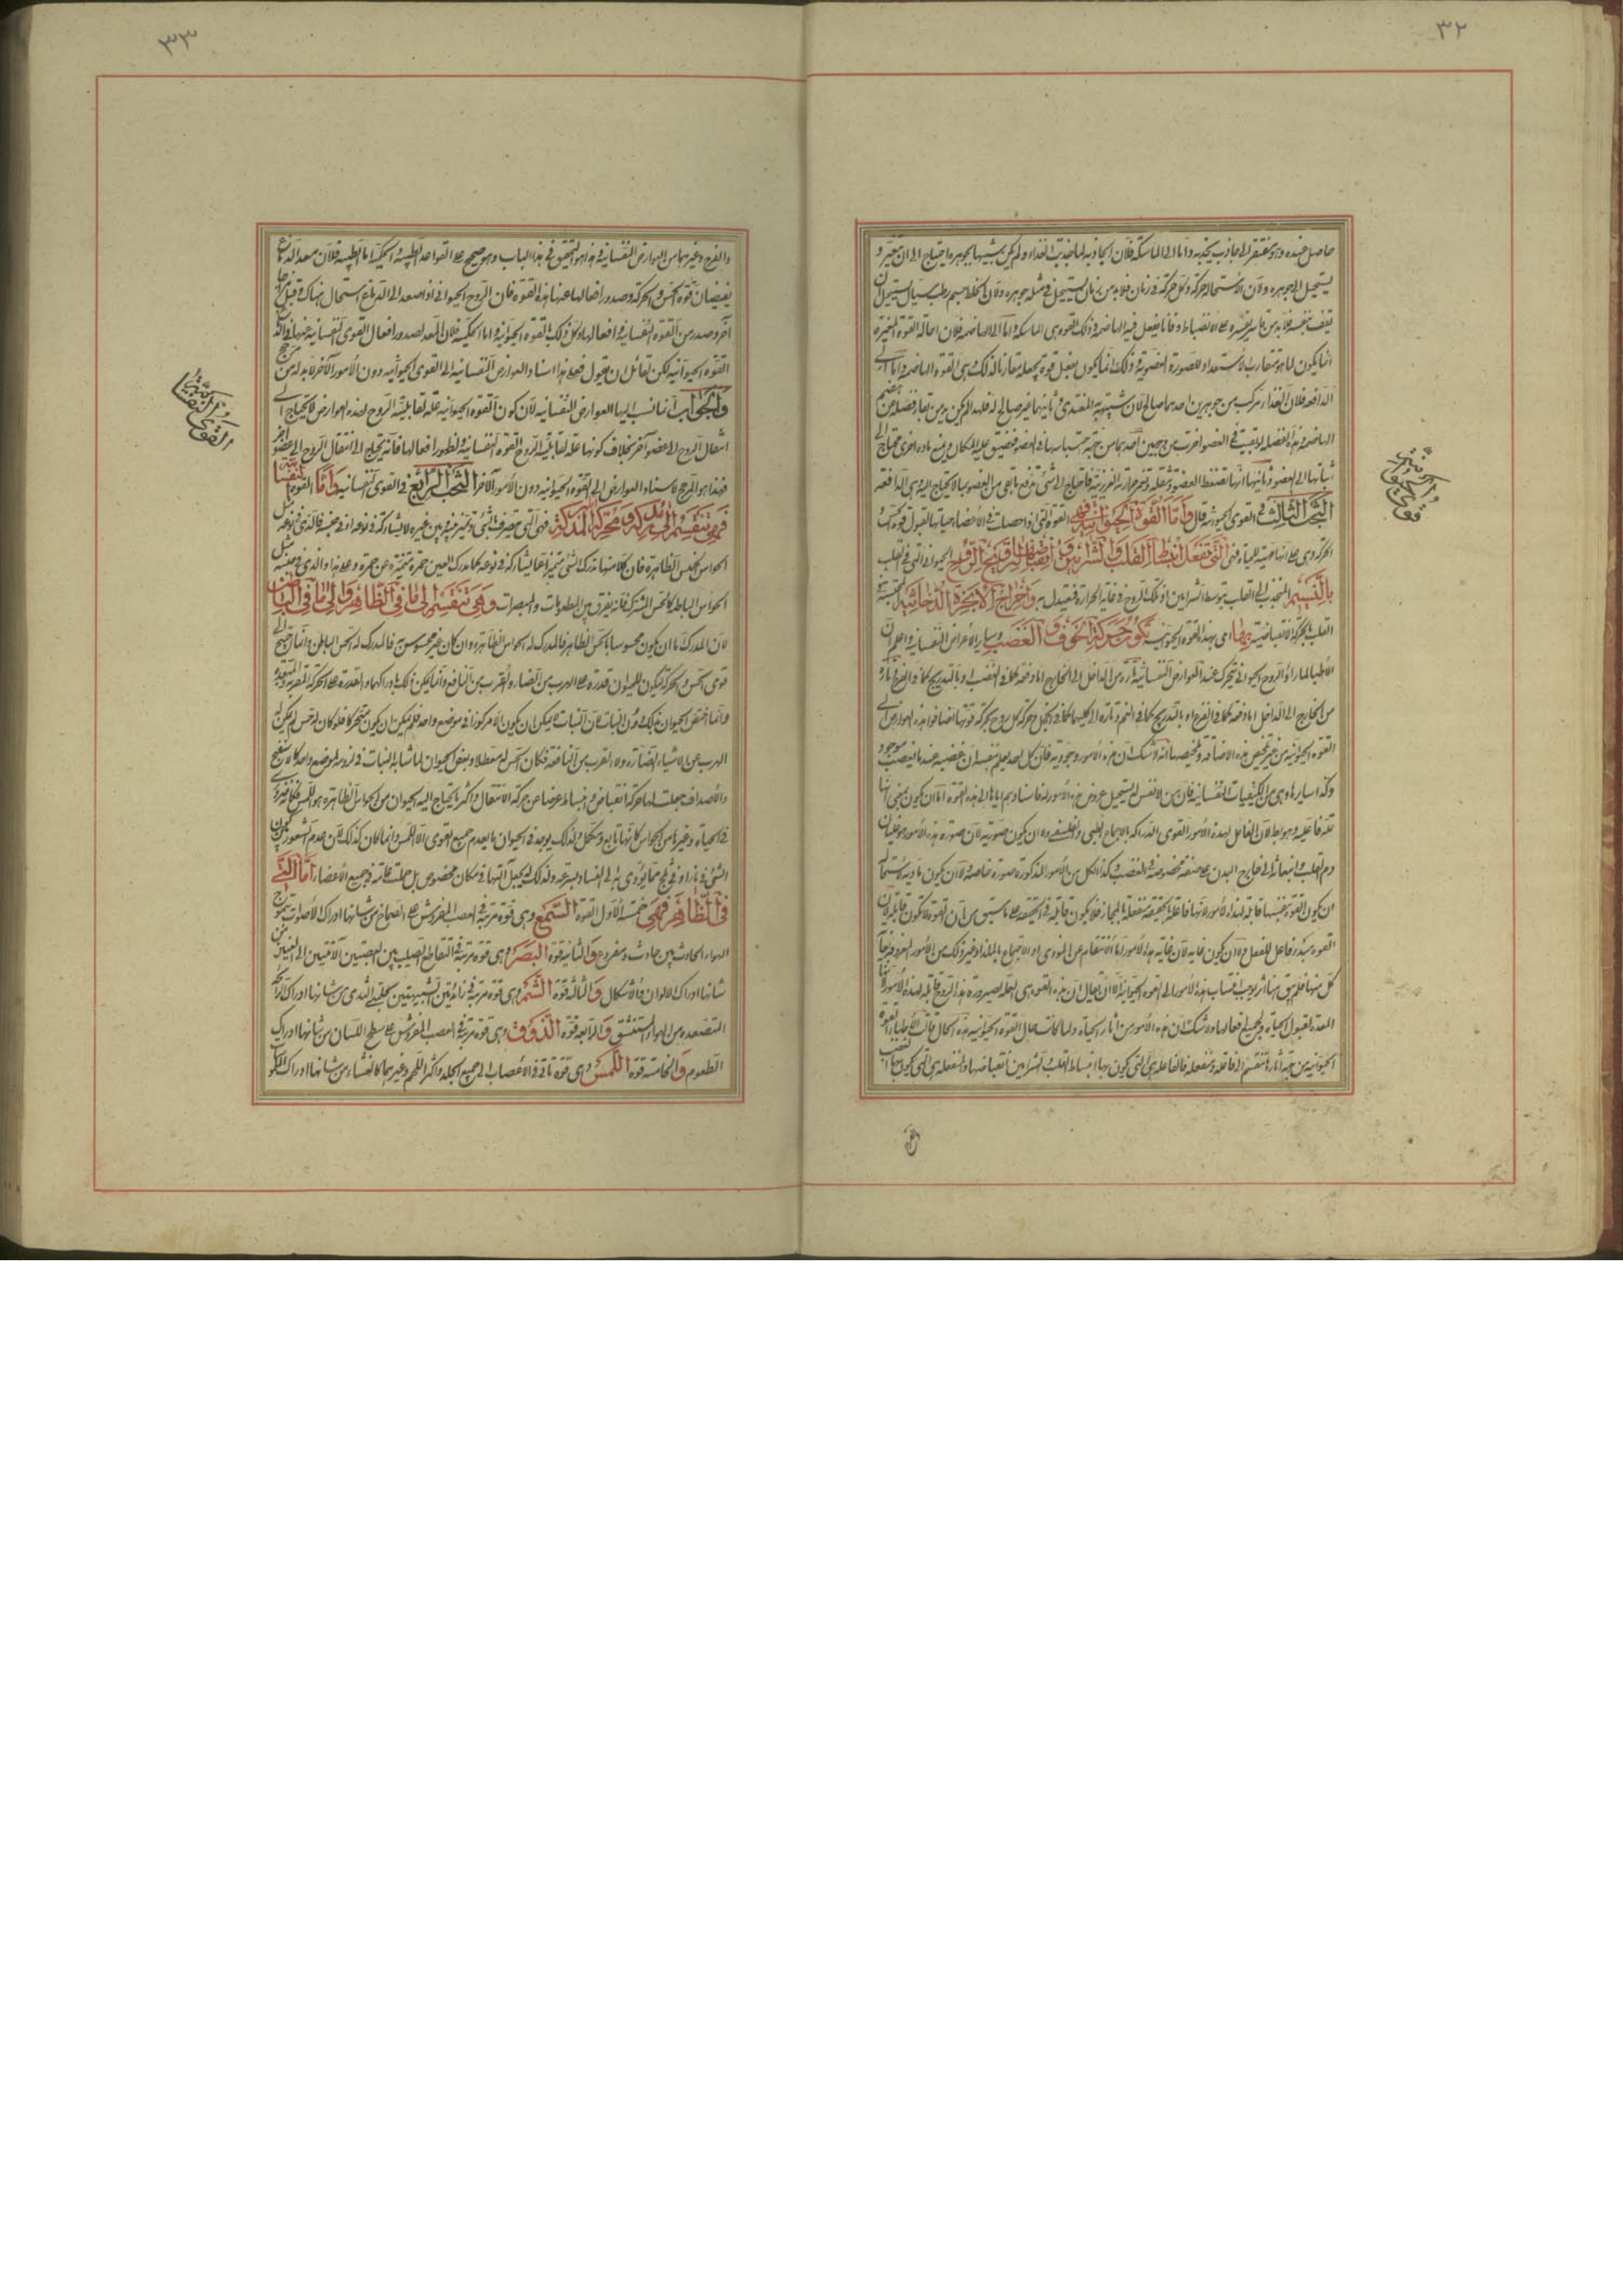 ٣٢
حاصل عنده وهو مفتقر الى جاذب يجذبه واما الى الماسكة فلان الجاذبة لما جذبت الغذاء ولم يكن شبيها بجوهره احتاج الى ان يتغير و
يستحيل الى جوهره ولان الاستحالة حركة وكل حركة في زمان فلا بد من زمان يستحيل في مثله جوهره ولان الخلط جسم رطب سيال استحيل ان
يقف بنفسه فلا بد من قاسر يقسره على الانضباط وقتا يفعل فيه الهاضمة وذلك القوة هي الماسكة واما الى الهاضمة فلان احالة القوة المغيرة
انما يكون لما هو متقارب الاستعداد للصورة العضوية وذلك انما يكون بفعل قوة يجعله متقاربا لذلك وهي القوة الهاضمة واما الى
الدافعة فلان الغذاء مركب من جوهرين احدهما صالح لان يتشبه بالمغتذي وثانيهما غير صالح له فلهذا لم يكن بد من
الهاضمة وهذه الفضلة لو بقيت في العضو اضرت من وجهين احدهما من جهة احتباسها في العضو فيضيق عليه المكان ويمنع مادة اخرى محتاج الى
اتيانها الى العضو وثانيهما انها تضغط العضو وتثقله وتغمر حرارته الغريزية فاحتاج الى شيء يدفع ما بقي من العضو مما لا يحتاج اليه وهي الدافعة
البحث الثالث في القوى الحيوانية قال واما القوة الحيوانية فهي القوة التي اذا حصلت في الاعضاء هيأتها لقبول قوة الحس و
الحركة وهي على انها مهيئة للحياة فهي التي تفعل انبساط القلب والشرائين وانقباضها لترويح الروح الحيواني التي في القلب
بالنسيم المنجذب الى القلب بتوسط الشرائين اذ تلك الروح في غاية الحرارة فتعتدل به واخراج الابخرة الدخانية المحتبسة في
القلب بالحركة الانقباضية بها اي بهذه القوة الحيوانية تكون حركة الخوف والغضب وسائر الاعراض النفسانية واعلم ان
الاطباء لما راوا الروح الحيواني تتحرك عند العوارض النفسانية تارة من الداخل الى الخارج اما دفعة كما في الغضب او بالتدريج كما في الفرح وتارة
من الخارج الى الداخل اما دفعة كما في الفزع او بالتدريج كما في الغم وتارة الى كليهما كما في الخجل وحركة كل روح بحركة قوتها اضافوا هذه العوارض الى
القوة الحيوانية من غير تلخيص هذه الاضافة وتلخيصها انه لا شك ان هذه الامور وجودية فان كل احد يعلم من نفسه ان غضبه عندما يغضب موجود
وكذا سائرها وهي من الكيفيات النفسانية فان من لا نفس له يستحيل عروض هذه الامور له فاسنادهم اياها الى هذه القوة اما ان يكون بمعنى انها
علة فاعلية وهو باطل لان الفاعل لهذه الامور القوى الدراكة بالاجماع الطبي والفلسفي
دم القلب وانبعاثه الى خارج البدن على صفة مخصوصة والغضب وكذا لكل من الامور المذكورة صورة خاصة
ان يكون القوة نفسها قابلة لهذه الامور لانها فاعلة بالحقيقة منفعلة بالمجاز فلا يكون قابلة في الحقيقة على ما سبق من ان القوة لا تكون قابلة لان
القوة مبدء فاعل للفعل
كل منها فلم يبق
المعدة لقبول الحياة ولجميع افعالها ولا شك ان هذه الامور من اثار الحياة ولما كانت حال القوة الحيوانية هذه الحال قالت الاطباء القوة
الحيوانية من جهة آثارها تنقسم الى فاعلة ومنفعلة فالفاعلة هي التي يكون بها انبساط القلب والشرائين وانقباضها والمنفعلة هي التي يكون بها الغضب
٣٣
والفرح وغيرهما من العوارض النفسانية فهذا هو التحقيق في هذا الباب وهو صحيح على القواعد الطبية والحكمية اما الطبية فلان معد الدماغ
لفيضان قوة الحس والحركة وصدور افعالها عنها هذه القوة فان الروح الحيواني اذا صعد الى الدماغ استحال هناك وقبل مزاجا
آخر وصدر من القوة النفسانية افعالها وكل ذلك بالقوة الحيوانية واما الحكمية فلان المعد لصدور افعال القوى النفسانية
القوة الحيوانية لكن لقائل ان يقول فعلى هذا اسناد العوارض النفسانية الى القوى الحيوانية دون الامور الآخر لا بد له من مرجح
والجواب انما نسب اليها العوارض النفسانية لان كون القوة الحيوانية علة لقابلية الروح لهذه العوارض لا يحتاج الى
انتقال الروح الى عضو آخر بخلاف كونها علة لقابلية الروح القوة النفسانية ولظهور افعالها فانه يحتاج الى انتقال الروح الى عضو آخر
فهذا هو المرجح لاسناد العوارض الى القوة الحيوانية دون الامور الآخر البحث الرابع في القوى النفسانية واما القوة النفسانية
فهي تنقسم الى مدركة ومحركة المدركة فهي التي
الحواس الخمس الظاهرة فان كلا منها تدرك الشيء متميزا عما يشاركه في نوعه كما تدرك العين حمرة متميزة عن حمرة وعلى هذا والذي في جنسه مثل
الحواس الباطنة كالحس المشترك فانه يفرق بين المطعومات والمبصرات وهي تنقسم الى ما في الظاهر والى ما في الباطن
لان المدرك اما ان يكون محسوسا بالحس الظاهر فالمدرك له الحواس الظاهرة وان كان غير محسوس به فالمدرك له الحس الباطن وانما احتيج الى
قوى الحس والحركة ليكون للحيوان قدرة على الهرب من الضار والقرب من النافع وانما يمكن ذلك بادراكهما والقدرة على الحركة
وانما اختص الحيوان بذلك دون النبات لان النبات لا يمكن ان يكون الا مركوزا في موضع واحد فلم يمكن ان يكون متحركا فلو كان له حس لم يمكن له
الهرب عن الاشياء الضارة ولا القرب من النافعة فكان الحس له معطلا وبعض الحيوان لما شابه النبات في لزومه لموضع واحد كالاسفنج
والاصداف جعلت لها حركة انقباض وانبساط عوضا عن حركة الانتقال واكثر ما يحتاج اليه الحيوان من الحواس الظاهرة هو اللمس
في الحياة وغيرها من الحواس كانها تابع ومكمل ولذلك يوجد في الحيوان ما يعدم جميع القوى الا اللمس وانما كان كذلك لان عدم الشعور بكون
الشيء في نار او في ثلج مما يؤدي به الى الفساد بسرعة ولذلك لم يجعل آلتها في مكان مخصوص بل جعلت عامة في جميع الاعضاء اما التي
في الظاهر فهي خمسة الاول القوة السمع وهي قوة مرتبة في العصب المفروش على الصماخ من شانها ادراك الاصوات بتموج
الهواء الحادث بين قارع ومقروع والثانية قوة البصر وهي قوة مرتبة في التقاطع الصليب بين العصبتين الآتيتين الى العينين من
شانها ادراك الالوان والاشكال والثالثة قوة الشم وهي قوة مرتبة في زائدتين الشبيهتين بحلمتي الثدي من شانها ادراك الرائحة
المتصعدة من الهواء المستنشق والرابعة قوة الذوق وهي قوة مرتبة في العصب المفروش على سطح اللسان من شانها ادراك
الطعوم والخامسة قوة اللمس وهي قوة ثابتة في الاعصاب الى جميع الجلد واكثر اللحم وغيرهما كالغشاء من شانها ادراك